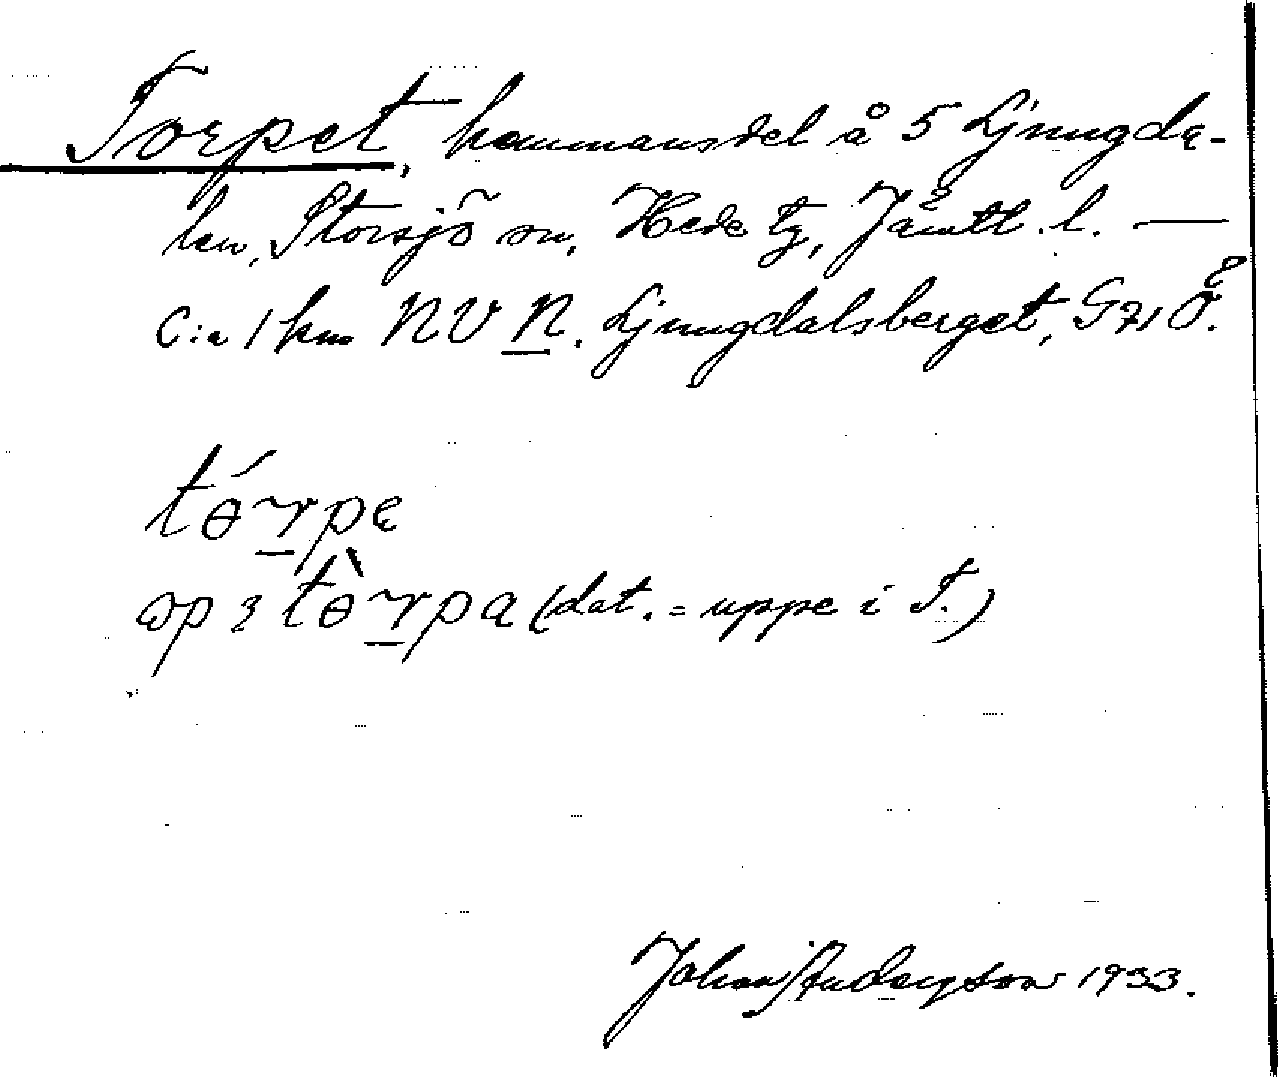 Torpet, hemmansdel å 5 Ljungda-
len, Storsjö sn, Hede tg, Jämtl. l. —
C:a 1 km NV N. Ljungdalsberget, G71 Ö.
tɵ́rpe
tɵ̀rpa (dat. = uppe i T.)
Johan Anderzson 1933.